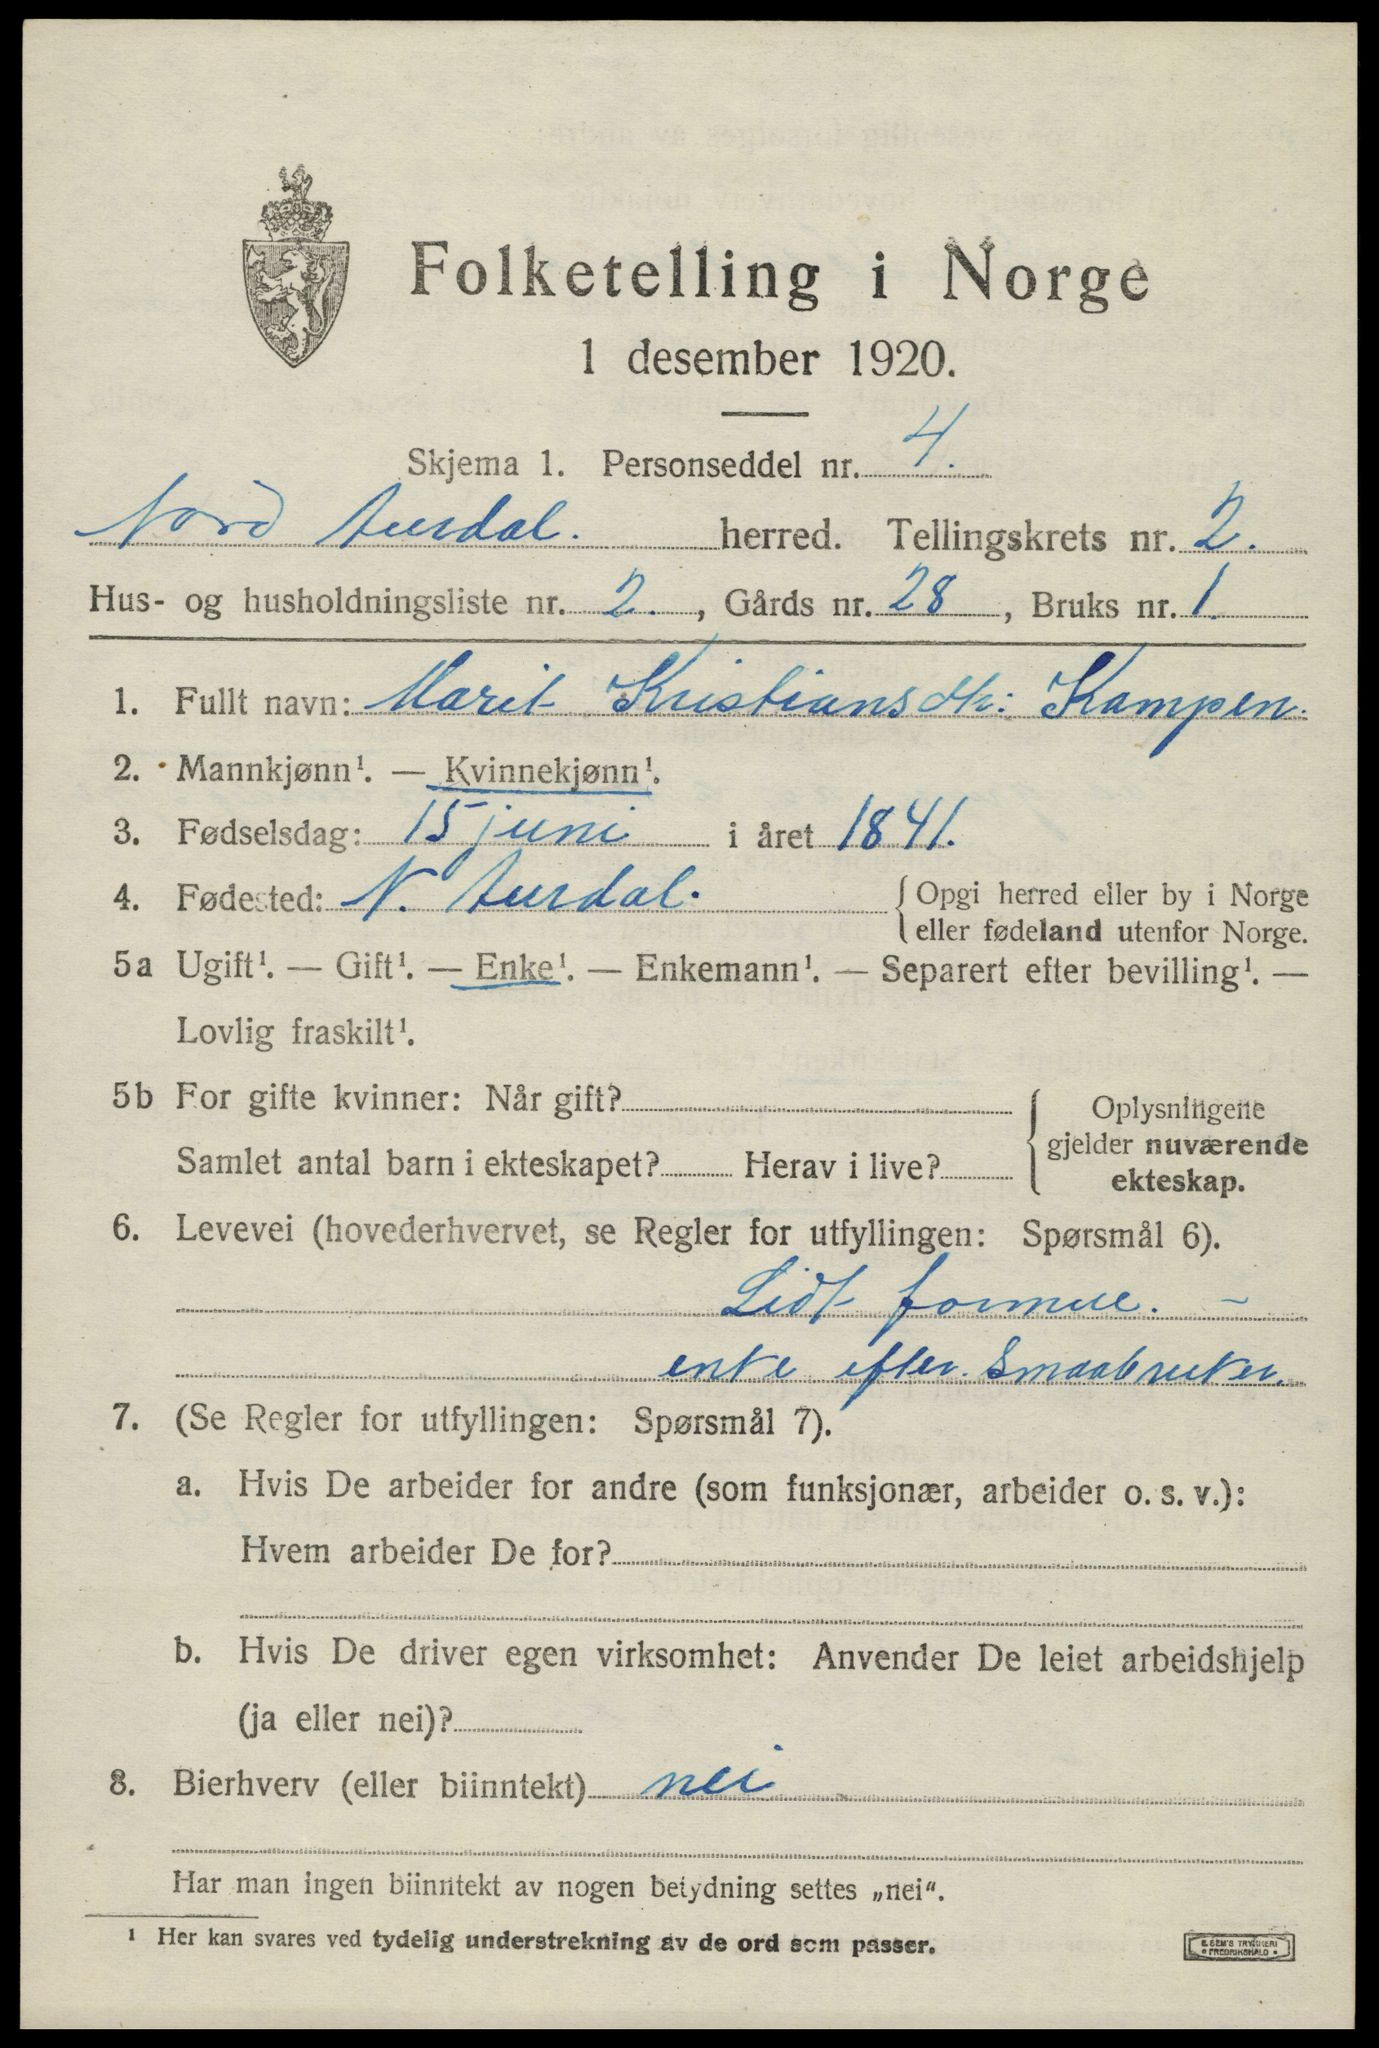 Folketelling i Norge
1 desember 1920.
Skjema 1. Personseddel nr. 4.
Nord Aurdal. herred. Tellingskrets nr. 2.
Hus- og husholdningsliste nr. 2., Gårds nr. 28, Bruks nr. 1.
1. Fullt navn: Marit Kristiansdtr: Kampen.
2. Mannkjønn¹. — Kvinnekjønn¹.
3. Fødselsdag: 15 juni i året 1841.
4. Fødested: N. Aurdal. { Opgi herred eller by i Norge
eller fødeland utenfor Norge.
5a Ugift¹. — Gift¹. — Enke¹. — Enkemann¹. — Separert efter bevilling¹. —
Lovlig fraskilt¹.
5b For gifte kvinner: Når gift? { Oplysningene
gjelder nuværende
Samlet antal barn i ekteskapet? Herav i live?
ekteskap.
6. Levevei (hovederhvervet, se Regler for utfyllingen: Spørsmål 6).
Lidt formue. –
enke efter Smaabruker.
7. (Se Regler for utfyllingen: Spørsmål 7).
a. Hvis De arbeider for andre (som funksjonær, arbeider o. s. v.):
Hvem arbeider De for?
b. Hvis De driver egen virksomhet: Anvender De leiet arbeidshjelp
(ja eller nei)?
8. Bierhverv (eller biinntekt) nei
Har man ingen biinntekt av nogen betydning settes „nei“.
¹ Her kan svares ved tydelig understrekning av de ord som passer.
E. SEM'S TRYKKERI
• FREDRIKSHALD •